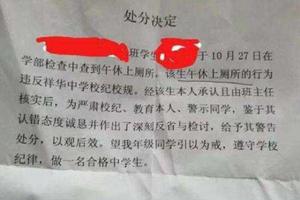 处分决定
班学生 于10月27日在
学部检查中查到午休上厕所。该生午休上厕所的行为
违反祥华中学校纪校规。经该生本人承认且由班主任
核实后，为严肃校纪、教育本人、警示同学，鉴于其
认错态度诚恳并作出了深刻反省与检讨，给予其警告
处分，以观后效。望我年级同学引以为戒，遵守学校
纪律，做一名合格中学生。